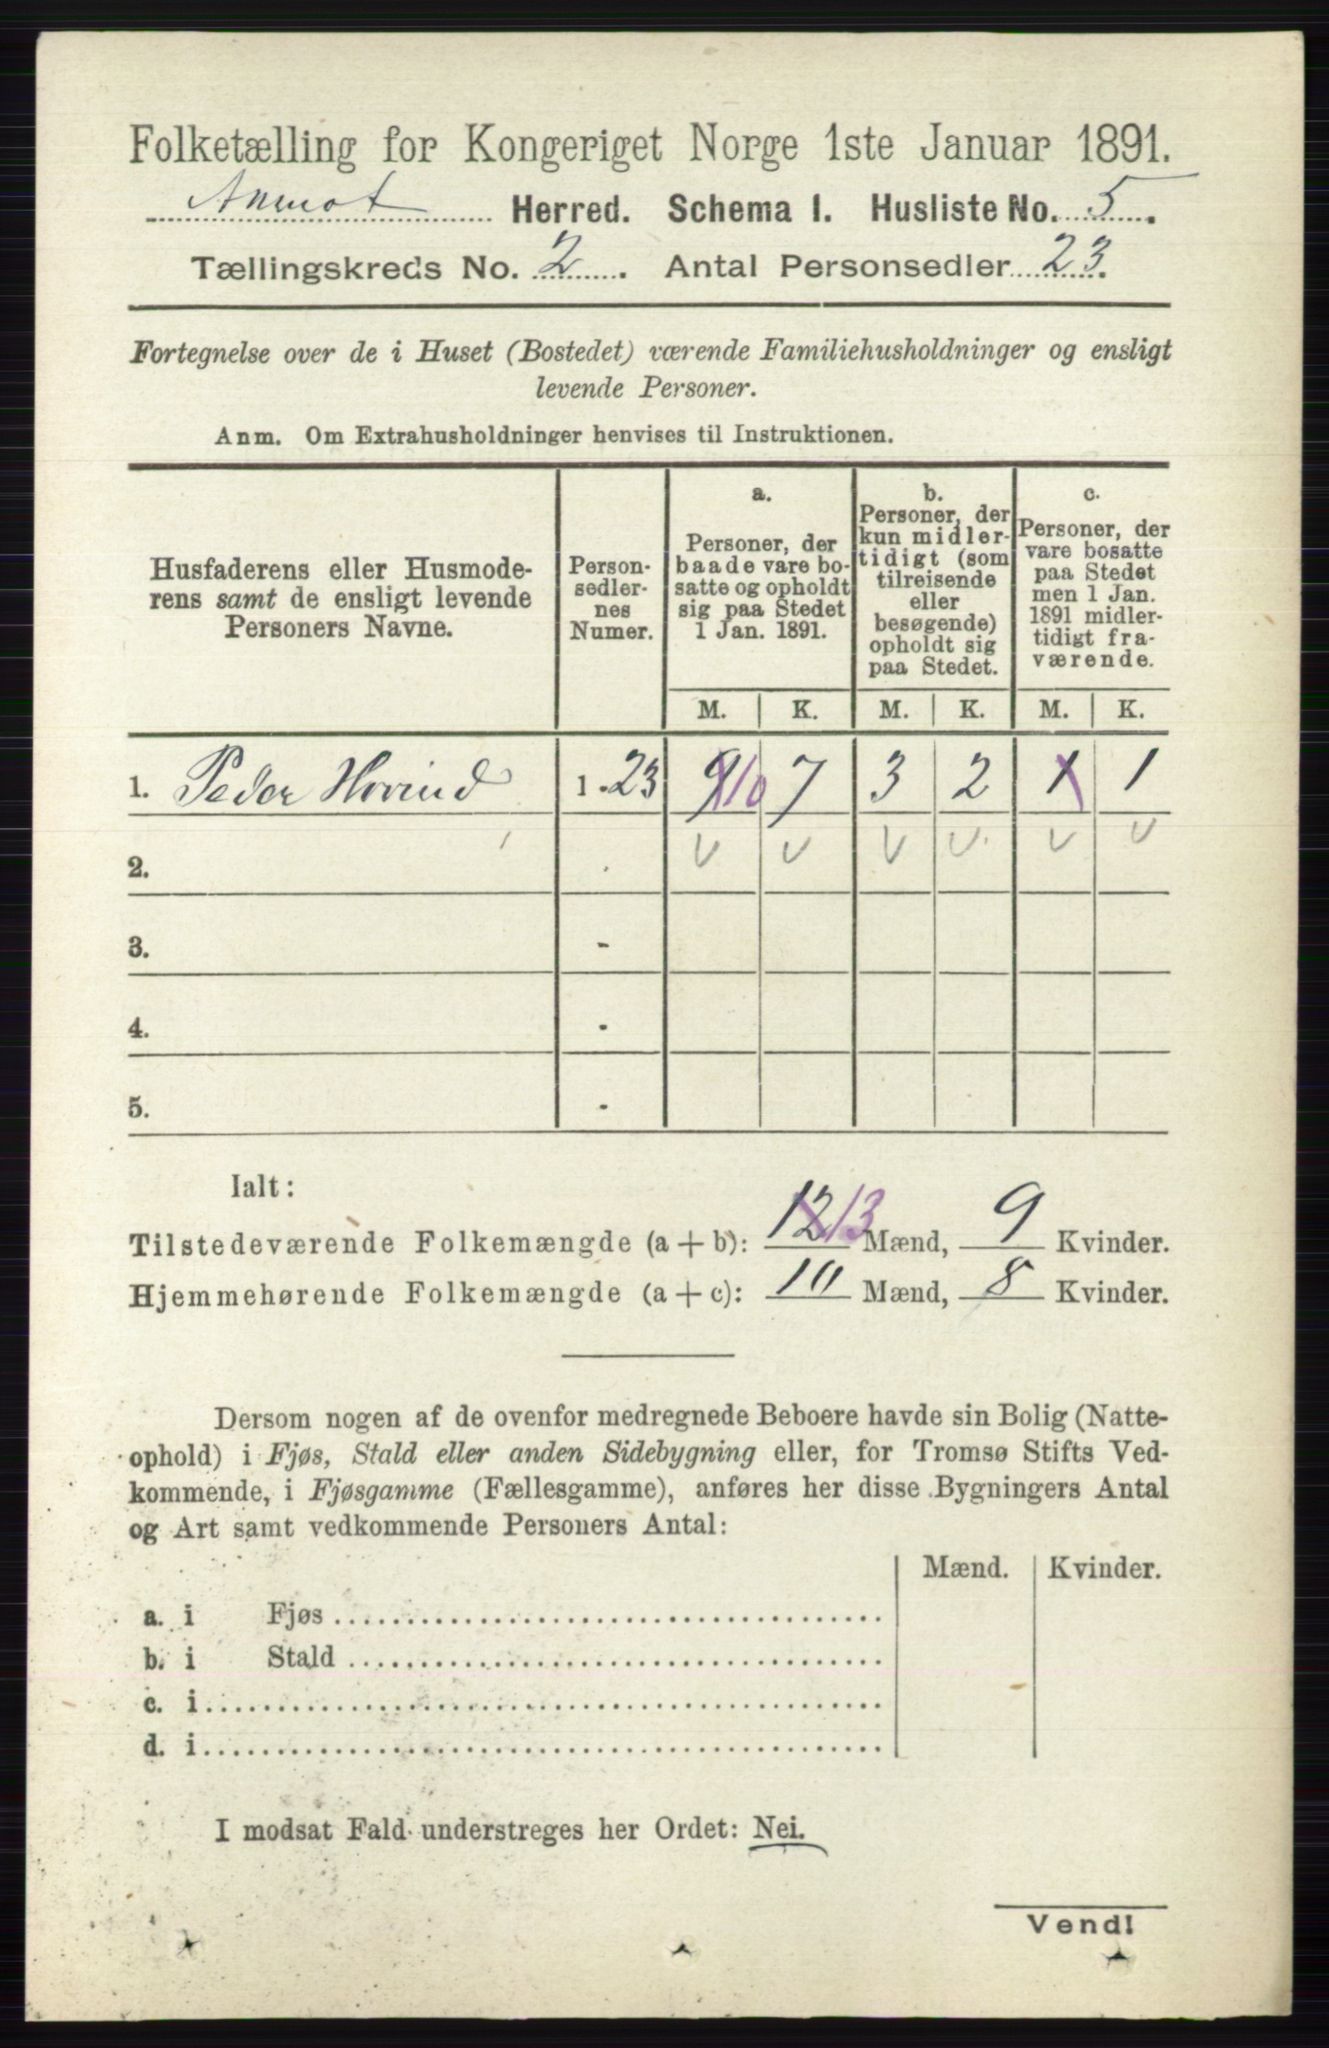 Folketælling for Kongeriget Norge 1ste Januar 1891.
Aamot Herred. Schema I. Husliste No. 5.
Tællingskreds No. 2. Antal Personsedler 23.
Fortegnelse over de i Huset (Bostedet) værende Familiehusholdninger og ensligt
levende Personer.
Anm. Om Extrahusholdninger henvises til Instruktionen.
Husfaderens eller Husmode-
rens samt de ensligt levende
Personers Navne.
Person-
sedler-
nes
Numer.
a.
Personer, der
baade vare bo-
satte og opholdt
sig paa Stedet
1 Jan. 1891.
b.
Personer, der
kun midler-
tidigt (som
tilreisende
eller
besøgende)
opholdt sig
paa Stedet.
c.
Personer, der
vare bosatte
paa Stedet
men 1 Jan.
1891 midler-
tidigt fra-
værende.
M. K. M. K. M. K.
1. Peder Hovind 1 - 23 9 10 7 3 2 1 1
2.
3. -
4. -
5. -
Ialt:
Tilstedeværende Folkemængde (a + b): 12 13 Mænd, 9 Kvinder.
Hjemmehørende Folkemængde (a + c): 10 Mænd, 8 Kvinder.
Dersom nogen af de ovenfor medregnede Beboere havde sin Bolig (Natte-
ophold) i Fjøs, Stald eller anden Sidebygning eller, for Tromsø Stifts Ved-
kommende, i Fjøsgamme (Fællesgamme), anføres her disse Bygningers Antal
og Art samt vedkommende Personers Antal:
Mænd. Kvinder.
a. i Fjøs
b. i Stald
c. i
d. i
I modsat Fald understreges her Ordet: Nei.
Vend!